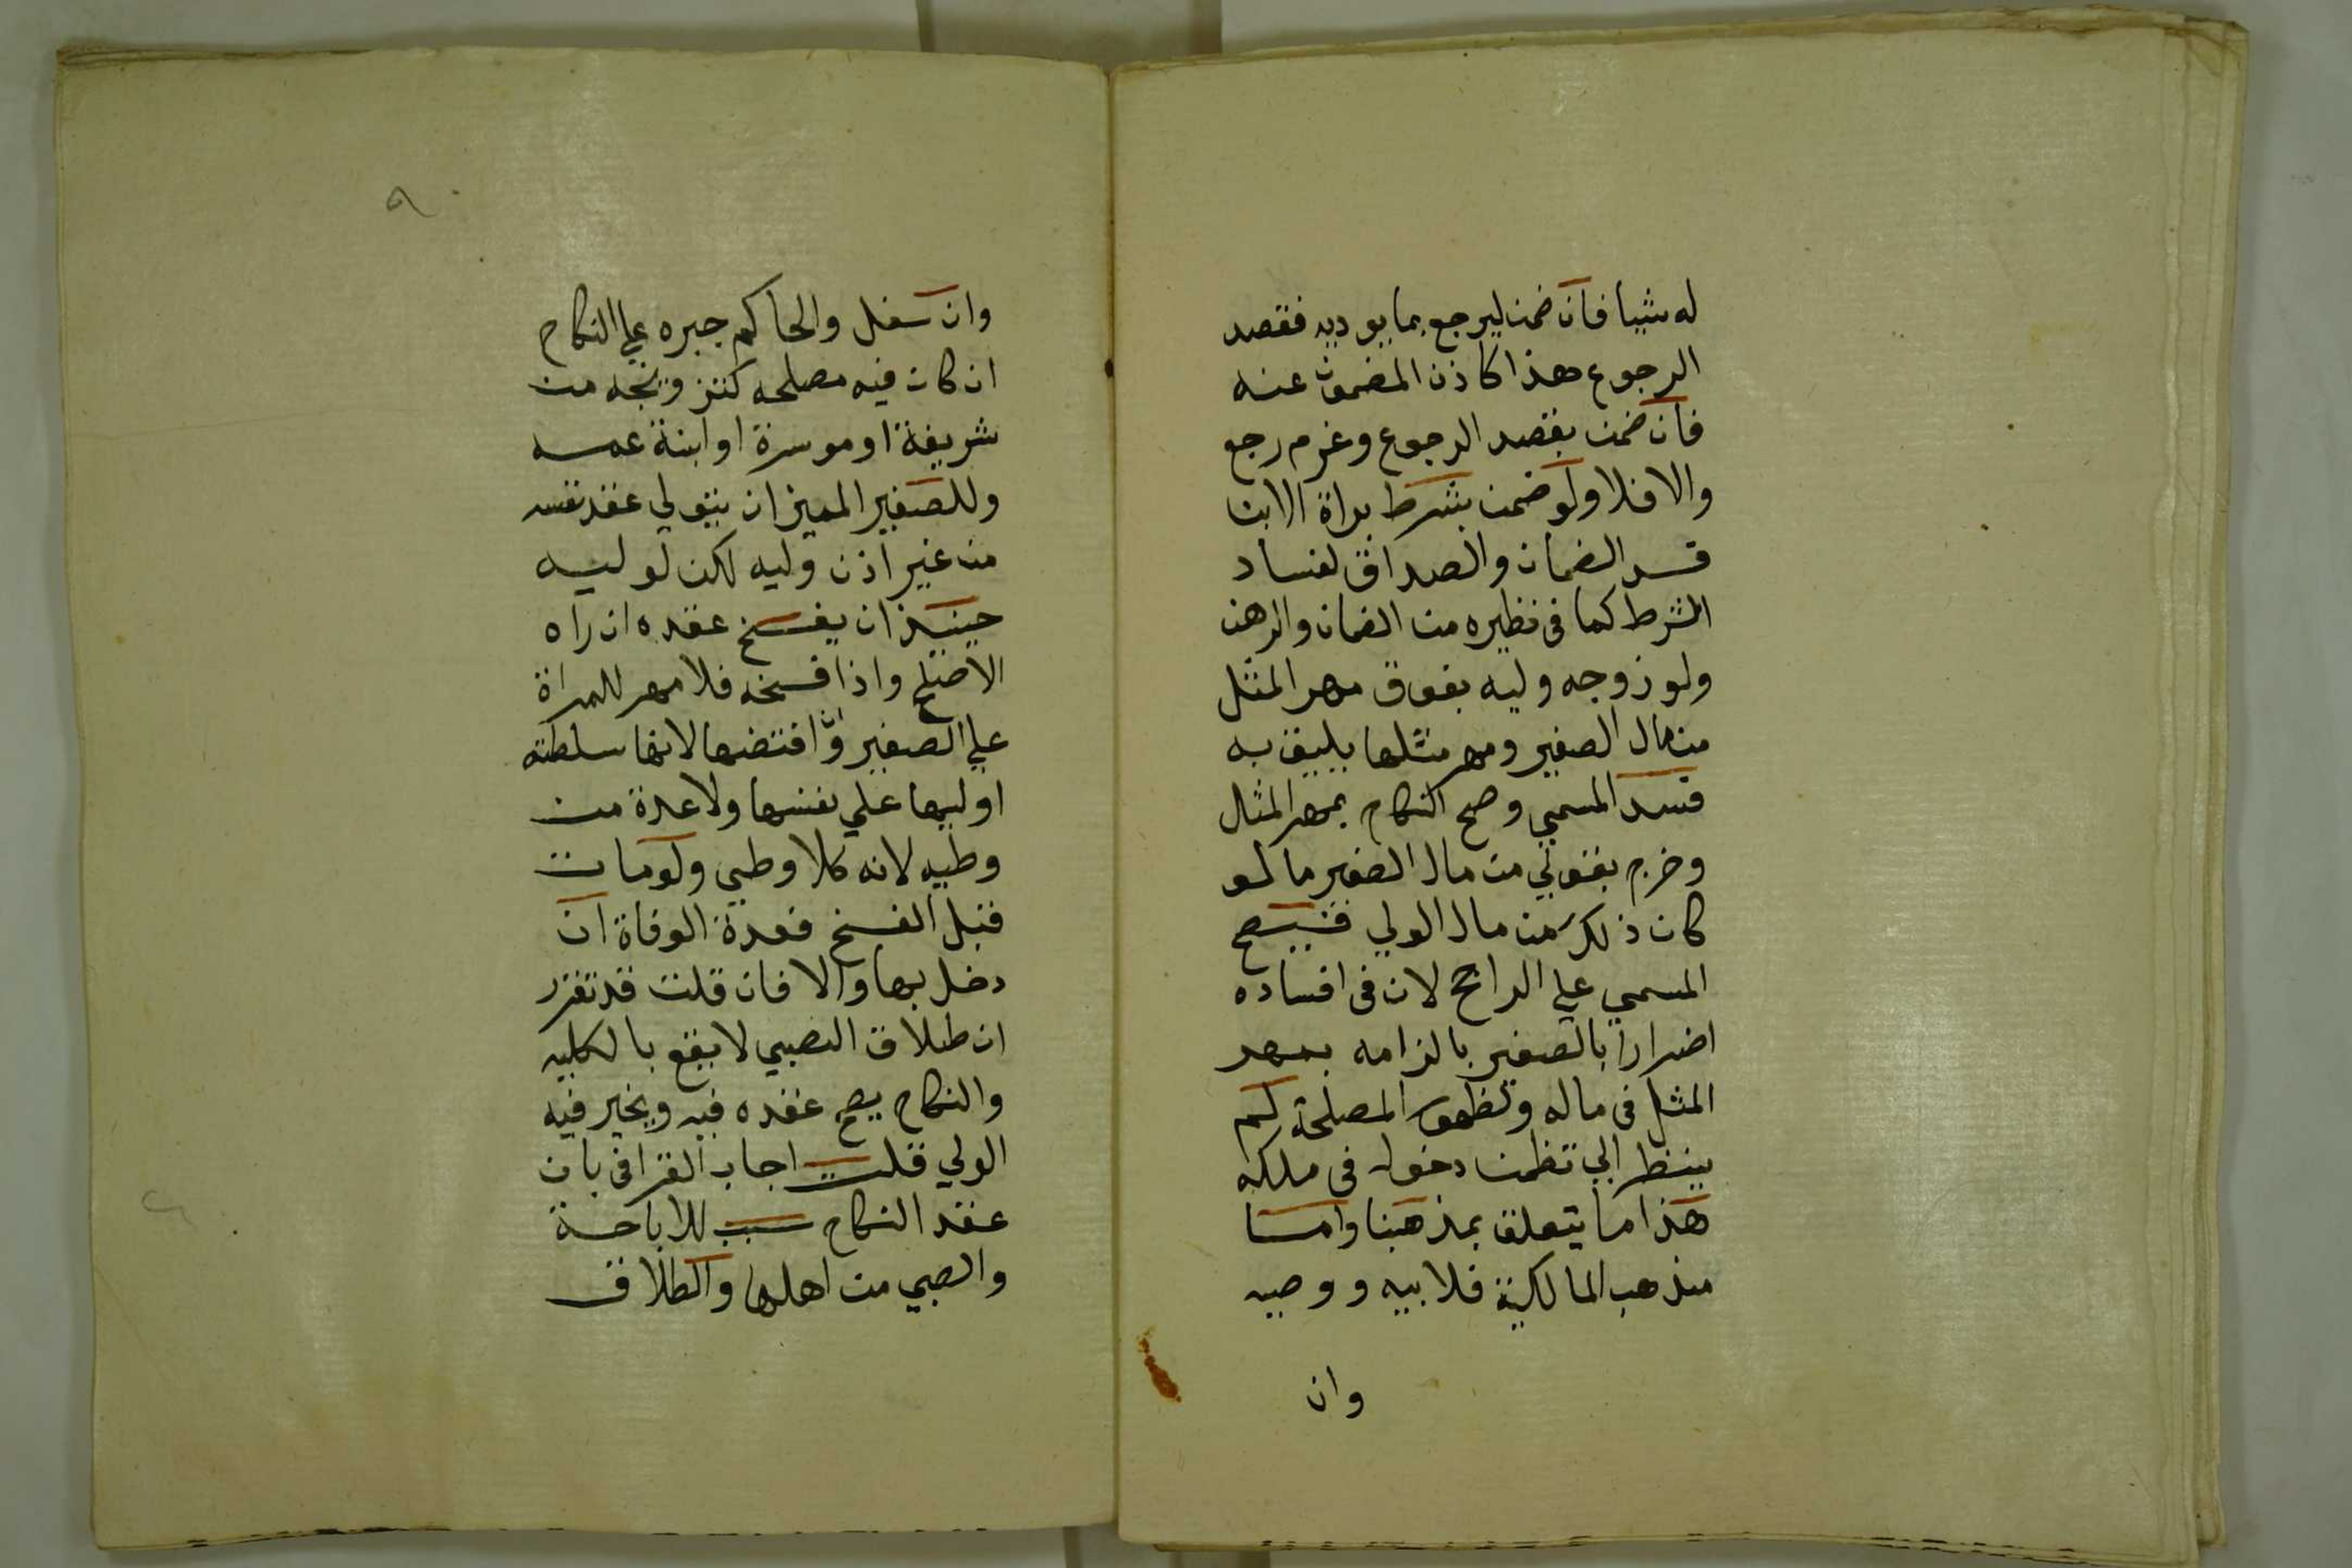 له شيا فان ضمن ليرجع بما يوديه فقصد
الرجوع هذا كاذن المضمون عنه
فان ضمن بقصد الرجوع وغرم رجع
والا فلا ولو ضمن بشرط براة الابن
فسد الضمان والصداق لفساد
الشرط كما فى نظيره من الضمان والرهن
ولو زوجه وليه بفوق مهر المثل
من مال الصغير ومهر مثلها يليق به
فسد المسمي وصح النكاح بمهر المثل
وخرج بقولي من مال الصغير ما لو
كان ذلك من مال الولي فيصح
المسمي علي الراجح لان فى افساده
اضرارا بالصغير بالزامه بمهر
المثل فى ماله ولظهور المصلحة لم
ينظر الي تضمن دخوله فى ملكه
هذا ما يتعلق بمذهبنا واما
مذهب المالكية فلابيه ووصيه
وان
٩
وان سفل والحاكم جبره علي النكاح
ان كان فيه مصلحه كتزويجه من
شريفة او موسرة او ابنة عمه
وللصغير المميز ان يتولي عقد نفسه
من غير اذن وليه لكن لوليه
حينيذ ان يفسخ عقده ان راه
الاصلح واذا فسخه فلا مهر للمراة
علي الصغير وان افتضها لانها سلطته
او ليها علي نفسها ولا عدة من
وطيه لانه كلا وطي ولو مات
قبل الفسخ فعدة الوفاة ان
دخل بها والا فان قلت قد تقرر
ان طلاق الصبي لا يقع بالكليه
والنكاح يصح عقده فيه ويخير فيه
الولي قلت اجاب القرافى بان
عقد النكاح سبب للاباحة
والصبي من اهلها والطلاق